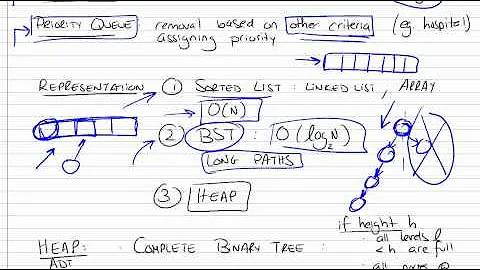 PRIORITY QUEUE removal based on other criteria (eg. hospital)
assigning priority
REPRESENTATION ① SORTED LIST : LINKED LIST, ARRAY
O(N)
② BST : O(log₂N)
LONG PATHS
③ HEAP
if height h
HEAP: COMPLETE BINARY TREE : · all levels
ADT < h are full
· all nodes @